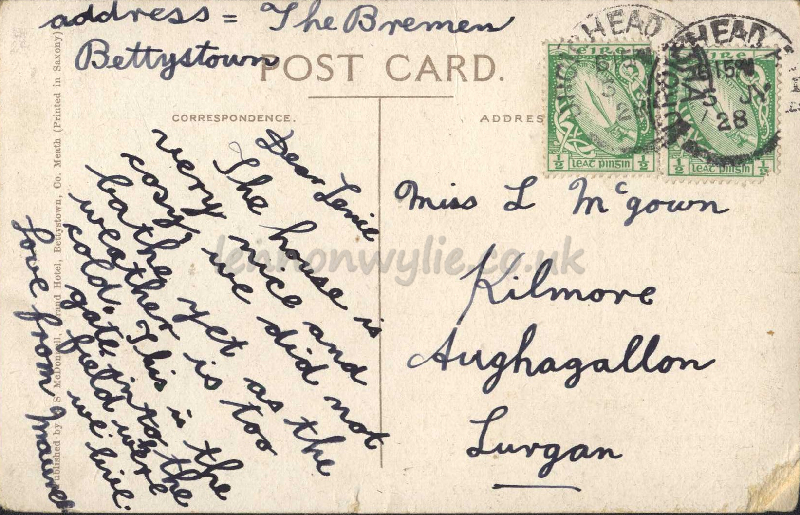 address = The Bremen
Bettystown
POST CARD.
CORRESPONDENCE.
ADDRES
Dear Lenie
The house is
very nice and
cosy, we did not
bathe yet as the
weather is too
cold. This is the
gate into the
field were
we live.
Love from
Miss L McGown
Kilmore
Aughagallon
Lurgan
EIRE
LEAT PINGIN ½
LEAT PINGIN ½
HEAD
HEAD
28
Published by S McDonnell, Strand Hotel, Bettystown, Co. Meath (Printed in Saxony)
lennonwylie.co.uk